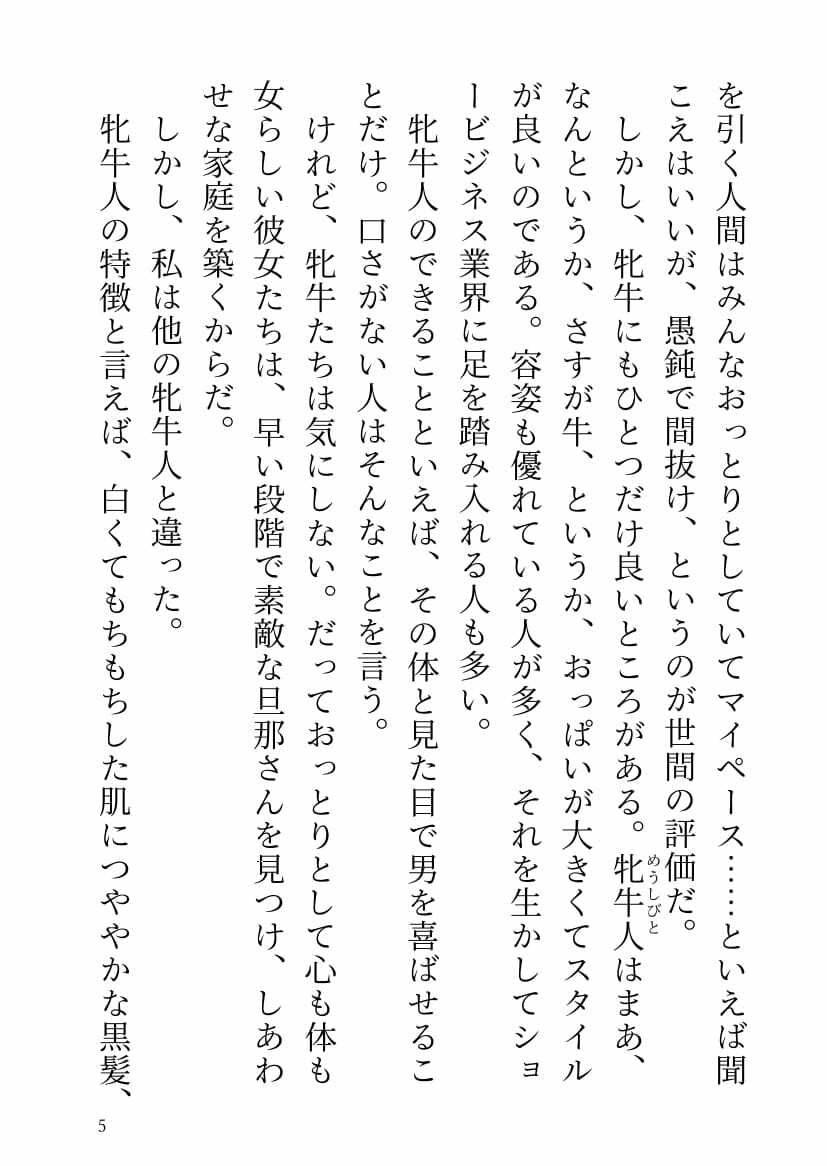 を引く人間はみんなおっとりとしていてマイペース……といえば聞
こえはいいが、愚鈍で間抜け、というのが世間の評価だ。
しかし、牝牛にもひとつだけ良いところがある。牝牛人はまあ、
めうしびと
なんというか、さすが牛、というか、おっぱいが大きくてスタイル
が良いのである。容姿も優れている人が多く、それを生かしてショ
ービジネス業界に足を踏み入れる人も多い。
牝牛人のできることといえば、その体と見た目で男を喜ばせるこ
とだけ。口さがない人はそんなことを言う。
けれど、牝牛たちは気にしない。だっておっとりとして心も体も
女らしい彼女たちは、早い段階で素敵な旦那さんを見つけ、しあわ
せな家庭を築くからだ。
しかし、私は他の牝牛人と違った。
牝牛人の特徴と言えば、白くてもちもちした肌につややかな黒髪、
5